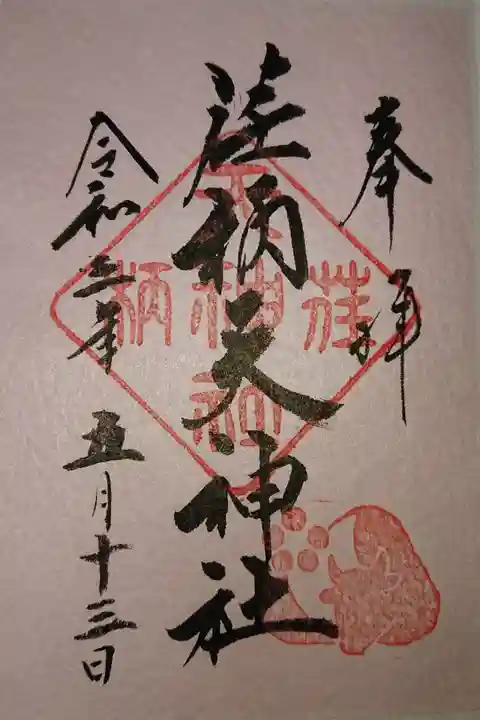 奉拝
荏柄天神社
令和三年 五月十三日
荏柄天神社